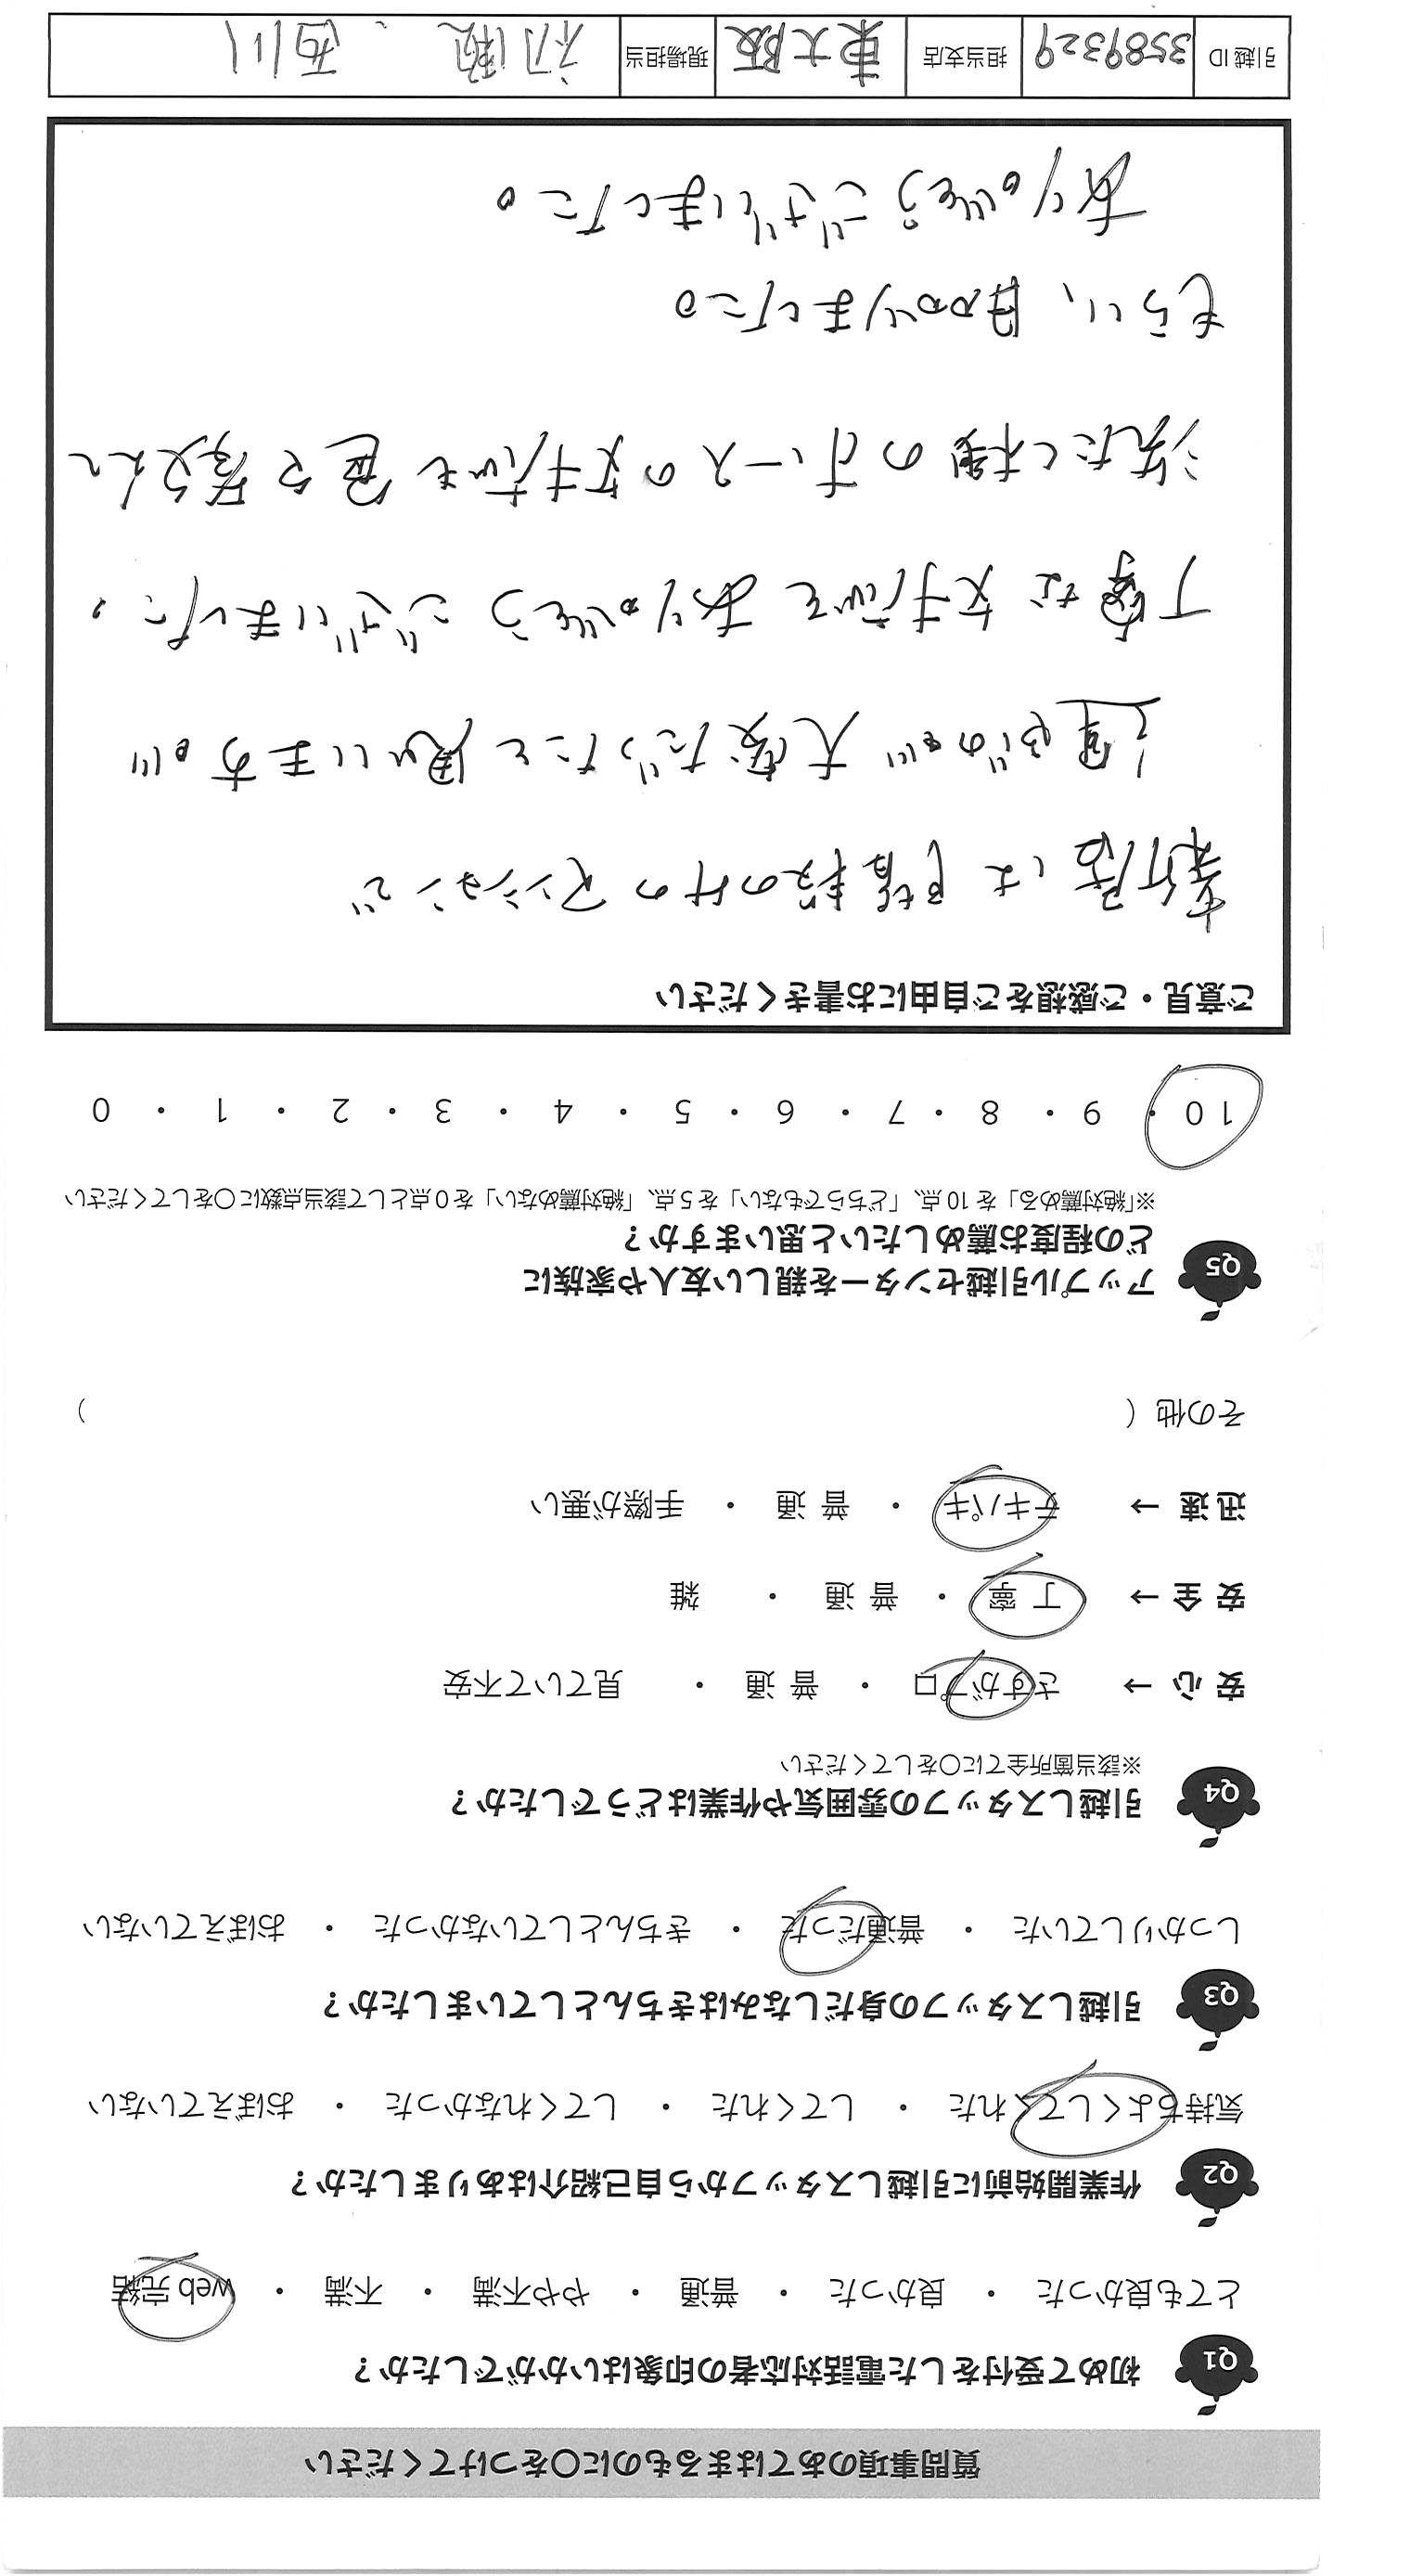 質問事項のあてはまるものに○をつけてください
Q1 初めて受付をした電話対応者の印象はいかがでしたか？
とても良かった ・ 良かった ・ 普通 ・ やや不満 ・ 不満 ・ web完結
Q2 作業開始前に引越しスタッフから自己紹介はありましたか？
気持ちよくしてくれた ・ してくれた ・ してくれなかった ・ おぼえていない
Q3 引越しスタッフの身だしなみはきちんとしていましたか？
しっかりしていた ・ 普通だった ・ きちんとしていなかった ・ おぼえていない
Q4 引越しスタッフの雰囲気や作業はどうでしたか？
※該当箇所全てに○をしてください
安心 → さすがプロ ・ 普通 ・ 見ていて不安
安全 → 丁寧 ・ 普通 ・ 雑
迅速 → テキパキ ・ 普通 ・ 手際が悪い
その他（ ）
Q5 アップル引越センターを親しい友人や家族に
どの程度お薦めしたいと思いますか？
※「絶対薦める」を10点、「どちらでもない」を5点、「絶対薦めない」を0点として該当点数に○をしてください
10 ・ 9 ・ 8 ・ 7 ・ 6 ・ 5 ・ 4 ・ 3 ・ 2 ・ 1 ・ 0
ご意見・ご感想をご自由にお書きください
新居は階段のみのマンションで
運ぶのが大変だったと思いますが
丁寧な対応をありがとうございました。
洗たく機のホースの対応も色々考えて
もらい、助かりました。
ありがとうございました。
引越ID 3589329 担当支店 東大阪 現場担当 初瀬、西川